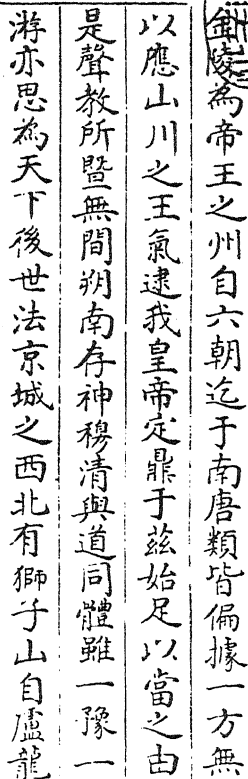 金陵為帝王之州自六朝迄于南唐類皆偏據一方無
以應山川之王氣逮我皇帝定鼎于茲始足以當之由
是聲教所暨無間朔南存神穆清與道同體雖一豫一
游亦思為天下後世法京城之西北有獅子山自盧龍